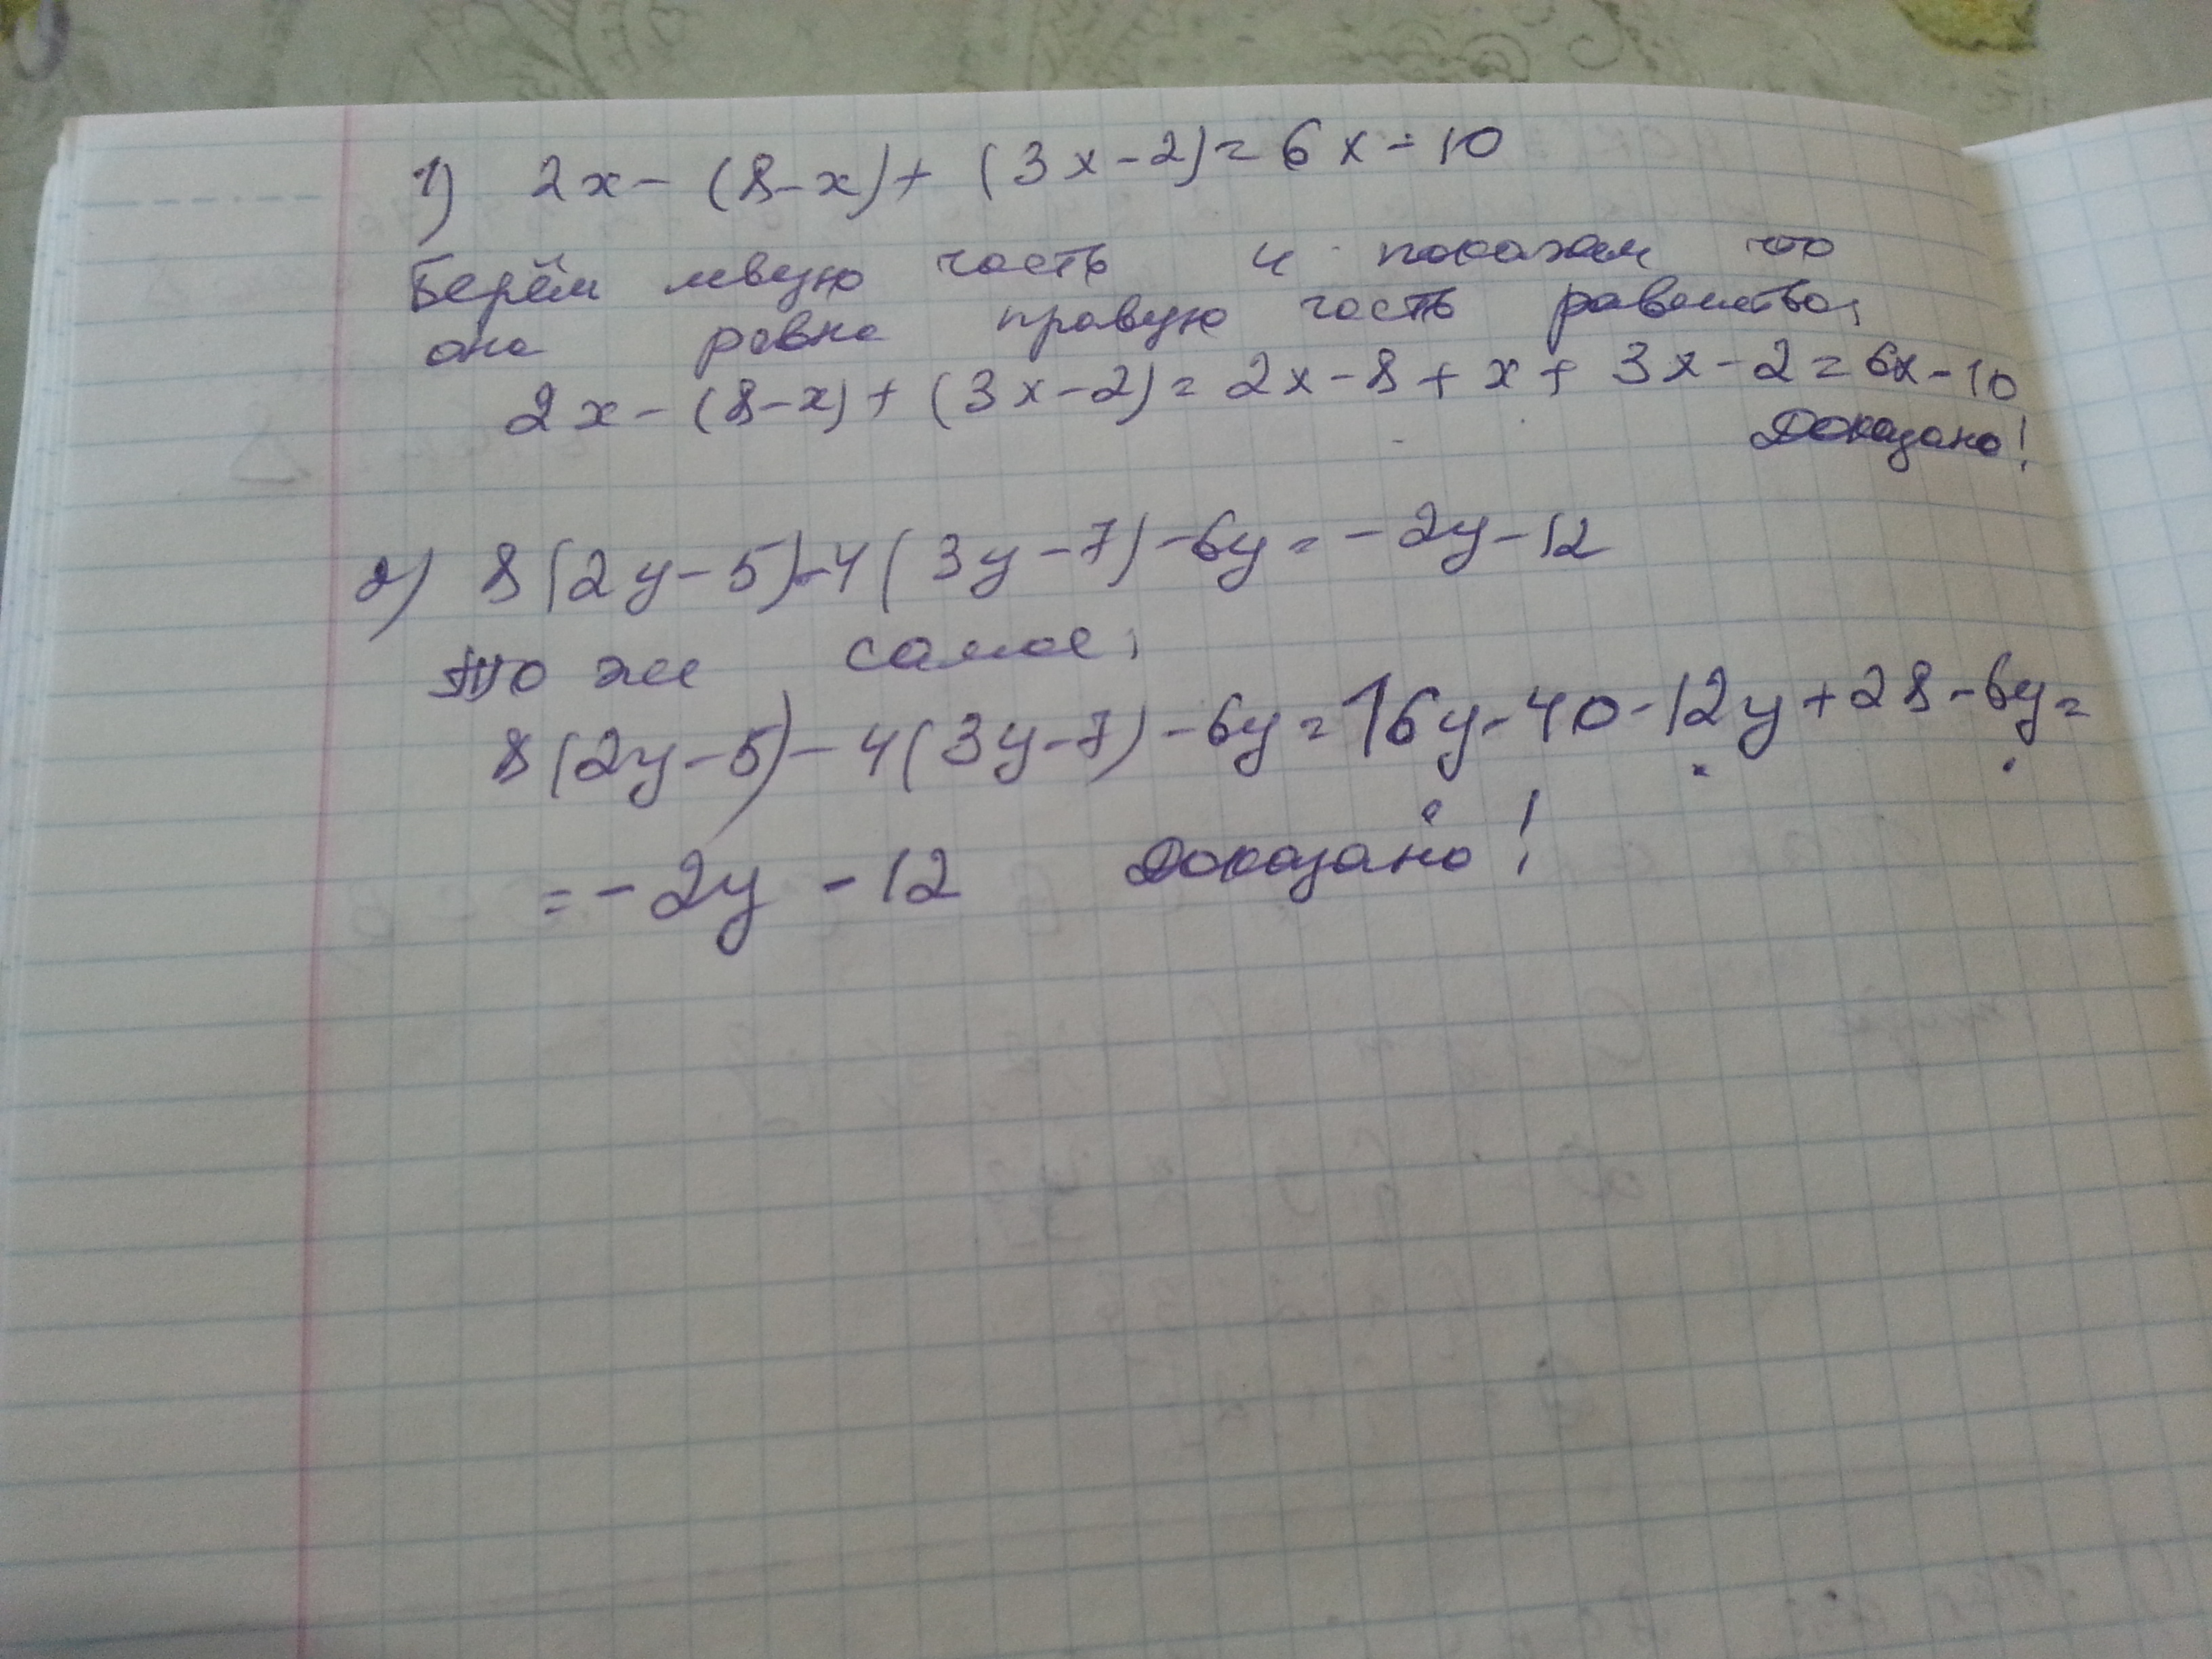 1) 2x - (8-x) + (3x-2) = 6x - 10
Берём левую часть и покажем что
она равна правую часть равенства,
2x - (8-x) + (3x-2) = 2x - 8 + x + 3x - 2 = 6x - 10
Доказано!
2) 8(2y-5) - 4(3y-7) - 6y = -2y - 12
то же самое,
8(2y-5) - 4(3y-7) - 6y = 16y - 40 - 12y + 28 - 6y =
= -2y - 12 Доказано!